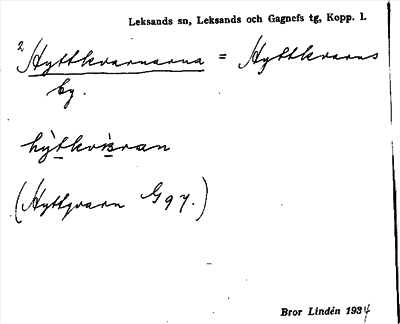 Leksands sn, Leksands och Gagnefs tg, Kopp. l.
2 Hyttkvarnarna = Hyttkvarns
by.
(Hyttqvarn G 97.)
Bror Lindén 1934